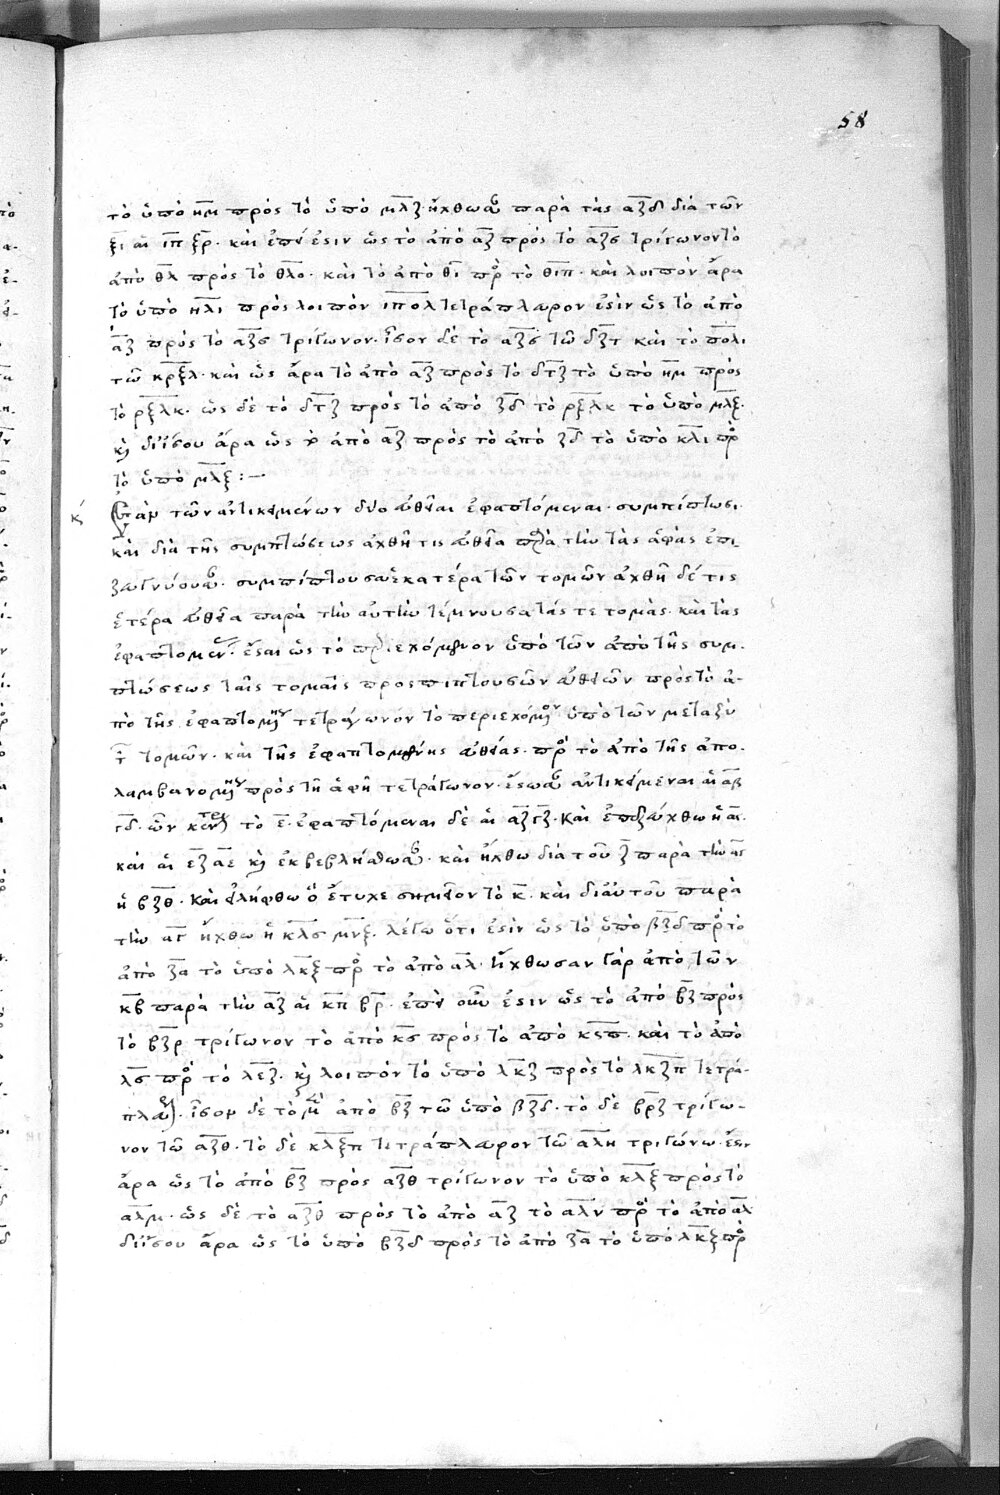 58
τὸ ὑπὸ ημ πρὸς τὸ ὑπὸ μλξ. ἤχθωσαν παρὰ τὰς αζδ διὰ τῶν
ξι αἱ ιπ ξρ. καὶ ἐπεί ἐστιν ὡς τὸ ἀπὸ αζ πρὸς τὸ αζς τρίγωνον τὸ
ἀπὸ θλ πρὸς τὸ θλο. καὶ τὸ ἀπὸ θι πρὸς τὸ θιπ. καὶ λοιπὸν ἄρα
τὸ ὑπὸ ηλι πρὸς λοιπὸν ιπολ τετράπλευρον ἐστὶν ὡς τὸ ἀπὸ
αζ πρὸς τὸ αζς τρίγωνον. ἴσον δὲ τὸ αζς τῶ δζτ καὶ τὸ πολι
τῶ κρξλ. καὶ ὡς ἄρα τὸ ἀπὸ αζ πρὸς τὸ δτζ τὸ ὑπὸ ημ πρὸς
τὸ ρξλκ. ὡς δὲ τὸ δτζ πρὸς τὸ ἀπὸ ζδ τὸ ρξλκ τὸ ὑπὸ μλξ.
καὶ διΐσου ἄρα ὡς τὸ ἀπὸ αζ πρὸς τὸ ἀπὸ ζδ τὸ ὑπὸ κλι πρὸς
τὸ ὑπὸ μλξ :—
κ Ἐὰν τῶν ἀντικειμένων δύο εὐθεῖαι ἐφαπτόμεναι. συμπίπτωσι.
καὶ διὰ τῆς συμπτώσεως ἀχθῆ τις εὐθεῖα παρὰ τὴν τὰς ἁφὰς ἐπι
ζευγνύουσαν. συμπίπτουσα ἑκατέρα τῶν τομῶν ἀχθῆ δέ τις
ἑτέρα εὐθεῖα παρὰ τὴν αὐτὴν τέμνουσα τάς τε τομὰς. καὶ τὰς
ἐφαπτομένας. ἔσται ὡς τὸ περιεχόμενον ὑπὸ τῶν ἀπὸ τῆς συμ-
πτώσεως ταῖς τομαῖς προσπιπτουσῶν εὐθειῶν πρὸς τὸ ἀ-
πὸ τῆς ἐφαπτομένης τετράγωνον τὸ περιεχόμενον ὑπὸ τῶν μεταξὺ
τῶν τομῶν. καὶ τῆς ἐφαπτομένης εὐθείας. πρὸς τὸ ἀπὸ τῆς ἀπο-
λαμβανομένης πρὸς τῆ ἁφῆ τετράγωνον. ἔστωσαν ἀντικείμεναι αἱ αβ
γδ. ὧν κέντρον τὸ ε. ἐφαπτόμεναι δὲ αἱ αζ γζ. καὶ ἐπεζεύχθω ἡ αγ.
καὶ αἱ εζ αε καὶ ἐκβεβλήσθωσαν. καὶ ἤχθω διὰ τοῦ ζ παρὰ τὴν αγ
ἡ βζθ. καὶ εἰλήφθω ὃ ἔτυχε σημεῖον τὸ κ. καὶ δι αὐτοῦ παρὰ
τὴν αγ ἤχθω ἡ κλσ μνξ. λέγω ὅτι ἐστὶν ὡς τὸ ὑπὸ βζδ πρὸς τὸ
ἀπὸ ζα τὸ ὑπὸ λκξ πρὸς τὸ ἀπὸ αλ. ἤχθωσαν γὰρ ἀπὸ τῶν
κβ παρὰ τὴν αζ αἱ κπ βρ. ἐπεὶ οὖν ἐστιν ὡς τὸ ἀπὸ βζ πρὸς
τὸ βζρ τρίγωνον τὸ ἀπὸ κσ πρὸς τὸ ἀπὸ κσπ. καὶ τὸ ἀπὸ
λσ πρὸς τὸ λεζ. καὶ λοιπὸν τὸ ὑπὸ λκζ πρὸς τὸ λκζπ τετρά-
πλευρον. ἴσον δὲ τὸ μὲν ἀπὸ βζ τῶ ὑπὸ βζδ. τὸ δὲ βρζ τρίγω-
νον τῶ αζθ. τὸ δὲ κλξπ τετράπλευρον τῶ αλη τριγώνω. ἔστιν
ἄρα ὡς τὸ ἀπὸ βζ πρὸς αζθ τρίγωνον τὸ ὑπὸ κλξ πρὸς τὸ
αλμ. ὡς δὲ τὸ αζθ πρὸς τὸ ἀπὸ αζ τὸ αλν πρὸς τὸ ἀπὸ αλ
διΐσου ἄρα ὡς τὸ ὑπὸ βζδ πρὸς τὸ ἀπὸ ζα τὸ ὑπὸ λκξ πρὸς